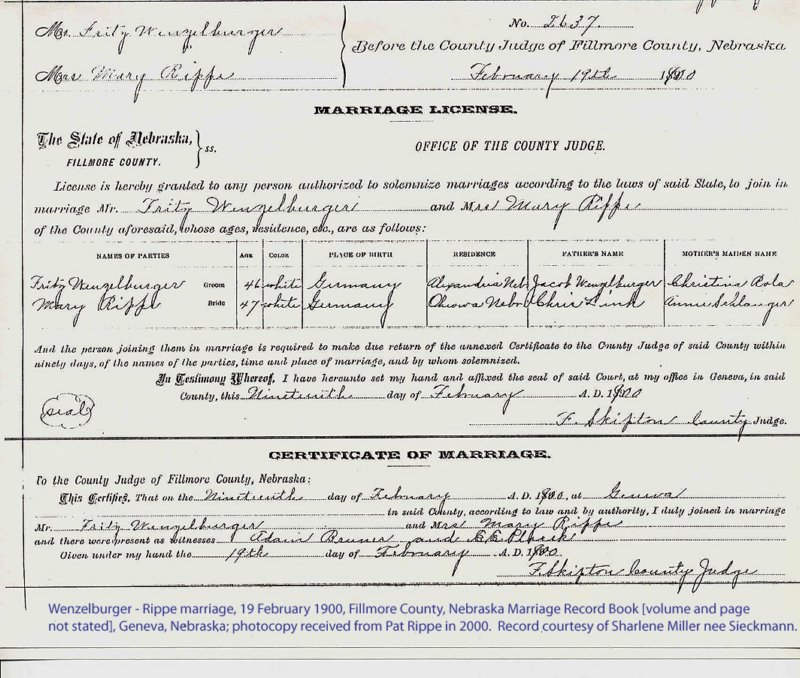 No. 2637
Mr. Fritz Wenzelburger
Before the County Judge of Fillmore County, Nebraska
Mrs Mary Rippe
February 19th 1900
MARRIAGE LICENSE.
The State of Nebraska, } ss.
FILLMORE COUNTY.
OFFICE OF THE COUNTY JUDGE.
License is hereby granted to any person authorized to solemnize marriages according to the laws of said State, to join in
marriage Mr. Fritz Wenzelburger and Mrs Mary Rippe
of the County aforesaid, whose ages, residence, etc., are as follows:
NAMES OF PARTIES AGE COLOR PLACE OF BIRTH RESIDENCE FATHER'S NAME MOTHER'S MAIDEN NAME
Fritz Wenzelburger Groom 46 white Germany Alexandria Neb Jacob Wenzelburger Christina
Mary Rippe Bride 47 white Germany Ohiowa Nebr Chris Link Annie Schlanger
And the person joining them in marriage is required to make due return of the annexed Certificate to the County Judge of said County within
ninety days, of the names of the parties, time and place of marriage, and by whom solemnized.
In Testimony Whereof, I have hereunto set my hand and affixed the seal of said Court, at my office in Geneva, in said
County, this Nineteenth day of February A. D. 1900
seal
F. Skipton County Judge.
CERTIFICATE OF MARRIAGE.
To the County Judge of Fillmore County, Nebraska:
This Certifies, That on the Nineteenth day of February A. D. 1900, at Geneva
in said County, according to law and by authority, I duly joined in marriage
Mr. Fritz Wenzelburger and Mrs Mary Rippe
and there were present as witnesses Adam Bruner and
Given under my hand the 19th day of February A. D. 1900.
F. Skipton County Judge
Wenzelburger - Rippe marriage, 19 February 1900, Fillmore County, Nebraska Marriage Record Book [volume and page
not stated], Geneva, Nebraska; photocopy received from Pat Rippe in 2000. Record courtesy of Sharlene Miller nee Sieckmann.